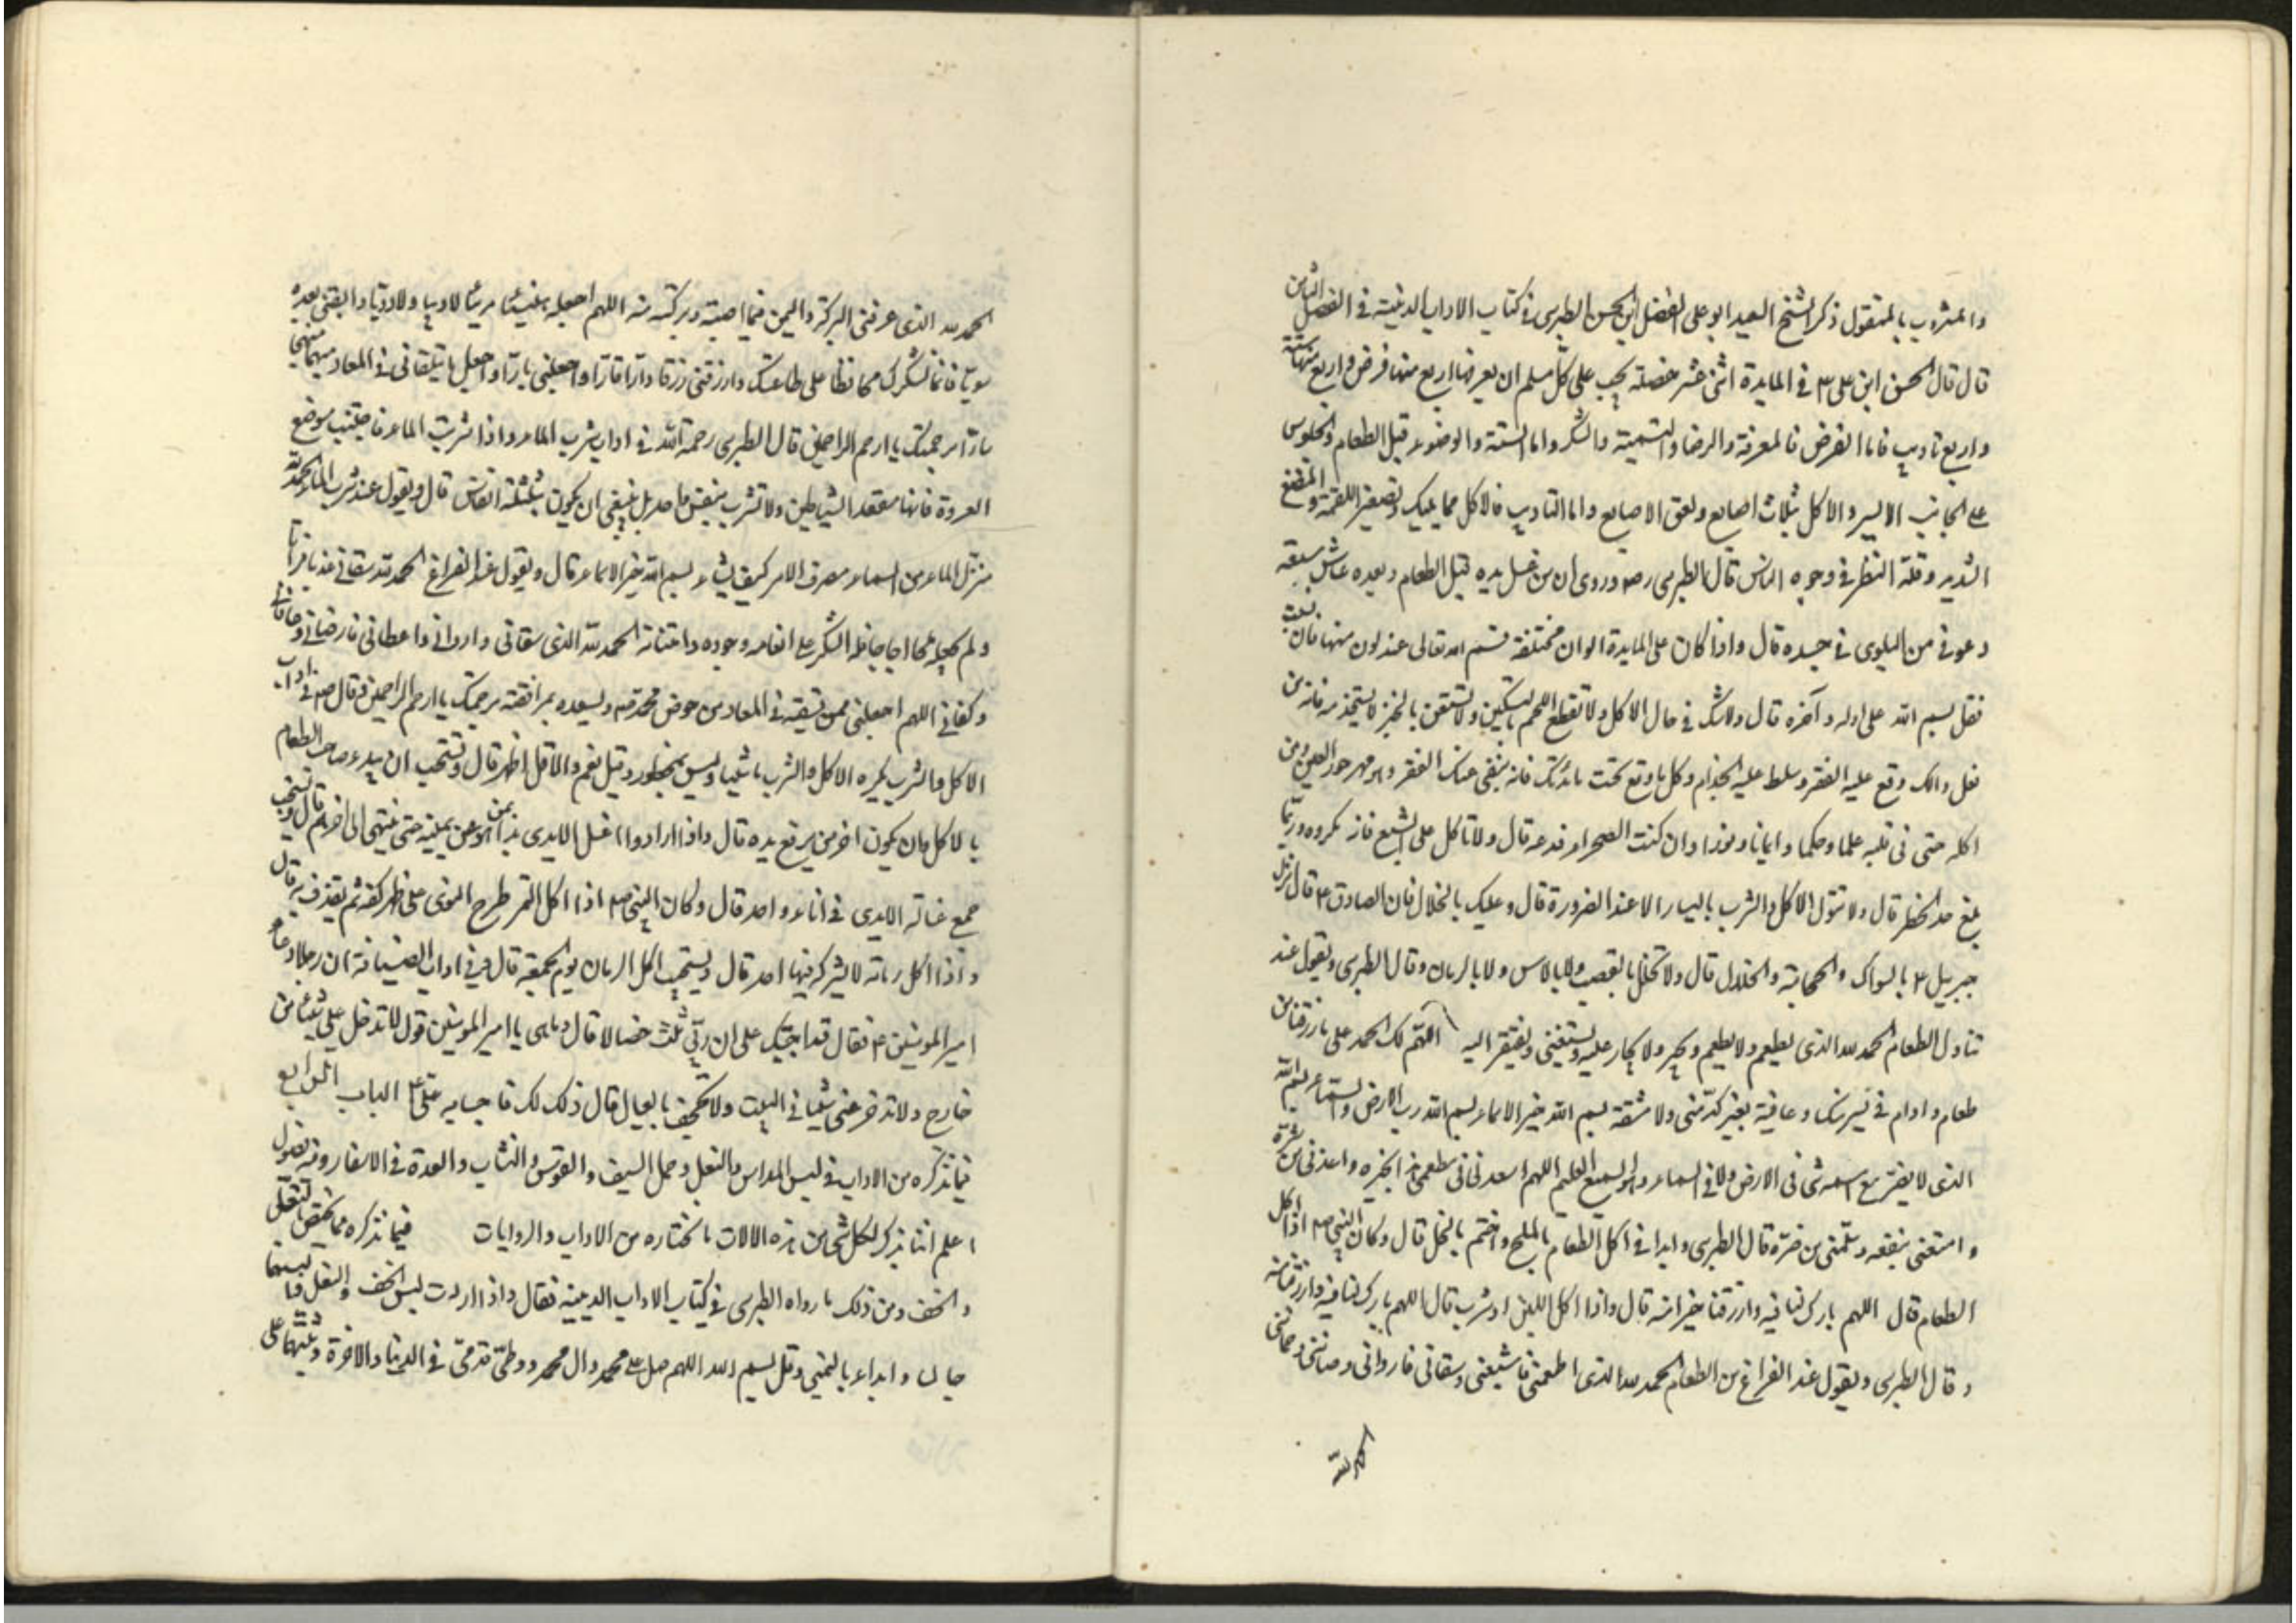 والمشروب بالمنقول ذكر الشيخ السعيد ابو على الفضل ابن الحسن الطبرسى فى كتاب الاداب الدينية فى الفصل الثامن
قال قال الحسن ابن على ع فى المايدة اثنى عشر خصلة يجب على كل مسلم ان يعرفها اربع منها فرض واربع منها سنة
واربع تاديب فاما الفرض فالمعرفة والرضا والتسمية والشكر واما السنة والوضوء قبل الطعام والجلوس
على الجانب الايسر والاكل بثلاث اصابع ولعق الاصابع واما التاديب فالاكل مما يليك وتصغير اللقمة والمضغ
الشديد وقلة النظر فى وجوه الناس قال الطبرسى ره وروى ان من غسل يده قبل الطعام وبعده عاش فى سعة
وعوفى من البلوى فى جسده قال واذا كان على المايدة الوان مختلفة فسم الله تعالى عند لون منها فان نسيت
فقل بسم الله على اوله وآخره قال ولا تتك فى حال الاكل ولا تقطع اللحم بالسكين ولا تستعن بالخبز لا يستخدم فانه من
فعل ذالك وقع عليه الفقر وسلط عليه الجذام وكل ما وقع تحت مائدتك فانه ينفى عنك الفقر وهو مهر حور العين ومن
اكله حشى فى قلبه علما وحكما وايمانا ونورا وان كنت فى الصحراء فدعه قال ولا تاكل على الشبع فانه مكروه وربما
بلغ حد الخطر قال ولا تتول الاكل والشرب باليسار الا عند الضرورة قال وعليك بالخلال فان الصادق ع قال نزل
جبريل ع بالسواك والحجامة والخلال قال ولا تخلل بالقصب ولا بالاس ولا بالرمان وقال الطبرسى ويقول عند
تناول الطعام الحمد لله الذى يطعم ولا يطعم ويجير ولا يجار عليه ويستغنى ويفتقر اليه اللهم لك الحمد على ما رزقتنا من
طعام وادام فى يسر منك وعافية بغير كد منى ولا مشقة بسم الله خير الاسماء بسم الله رب الارض والسماء بسم الله
الذى لا يضر مع اسمه شئ فى الارض ولا فى السماء وهو السميع العليم اللهم اسعدنى فى مطعمى هذا بخيره واعذنى من شره
وامتعنى بنفعه وسلمنى من ضره قال الطبرسى وابدا فى اكل الطعام بالملح واختم بالخل قال وكان النبى ص اذا اكل
الطعام قال اللهم بارك لنا فيه وارزقنا خيرا منه قال واذا اكل اللبن او شرب قال اللهم بارك لنا فيه وارزقنا منه
وقال الطبرسى ويقول عند الفراغ من الطعام الحمد لله الذى اطعمنى فاشبعنى وسقانى فاروانى وصاننى وحمانى
الحمد لله
الحمد لله الذى عرفنى البركة واليمن فيما اصبته وتركته منه اللهم اجعله هنيئا مريئا لا وبيا ولا دويا وابقنى بعده
سويا قائما لشكرك محافظا على طاعتك وارزقنى رزقا دارا قارا واجعلنى بارا واجعل ما يتلقانى فى المعاد مبهجا
سارا برحمتك يا ارحم الراحمين قال الطبرسى رحمة الله فى اداب شرب الماء واذا شربت الماء فاجتنب موضع
العروة فانها مقعد الشياطين ولا تشرب بنفس واحد بل ينبغى ان يكون بثلثة انفاس قال ويقول عند شرب الماء الحمد لله
منزل الماء من السماء مصرف الامر كيف يشاء بسم الله خير الاسماء قال ويقول عند الفراغ الحمد لله سقانى عذبا فراتا
ولم يجعله ملحا اجاجا فله الشكر على انعامه وجوده وامتنانه الحمد لله الذى سقانى واروانى واعطانى فارضانى وعافانى
وكفانى اللهم اجعلنى ممن تسقيه فى المعاد من حوض محمد ص وتسعده بمرافقته برحمتك يا ارحم الراحمين وقال ره فى اداب
الاكل والشرب يكره الاكل والشرب ماشيا وليس بمحظور وقيل نعم والاقل اظهر قال وتستحب ان يبدء صاحب الطعام
بالاكل وان يكون اخر من يرفع يده قال واذا ارادوا غسل الايدى بدأ بمن هو عن يمينه حتى ينتهى الى اخرهم قال وتستحب
جمع غسالة الايدى فى اناء واحد قال وكان النبى ص اذا اكل التمر طرح النوى على ظهر كفه ثم يقذف به قال
واذا اكل رمانة لا يشركه فيها احد قال ويستحب اكل الرمان يوم الجمعة قال وفى اداب الضيافة ان رجلا دعا
امير المومنين ع فقال قد اجبتك على ان لى ثلث خصالا قال وما هى يا امير المومنين قول لا تدخل على شيئا من
خارج ولا تدخر عنى شيئا فى البيت ولا تجحف بالعيال قال ذلك لك فاجابه على ع الباب الرابع
فيما نذكره من الاداب فى لبس المداس والنعل وحمل السيف والقوس والنشاب والعدة فى الاسفار وفيه فصول
اعلم اننا نذكر لكل شئ من هذه الالات ما نختاره من الاداب والروايات فيما نذكره مما يختص بالنعل
والخف ومن ذلك ما رواه الطبرسى فى كتاب الاداب الدينية فقال واذا اردت لبس الخف والنعل فالبسهما
جالسا وابداء باليمنى وقل بسم الله اللهم صل على محمد وال محمد ووطئ قدمى فى الدنيا والاخرة وثبتهما على